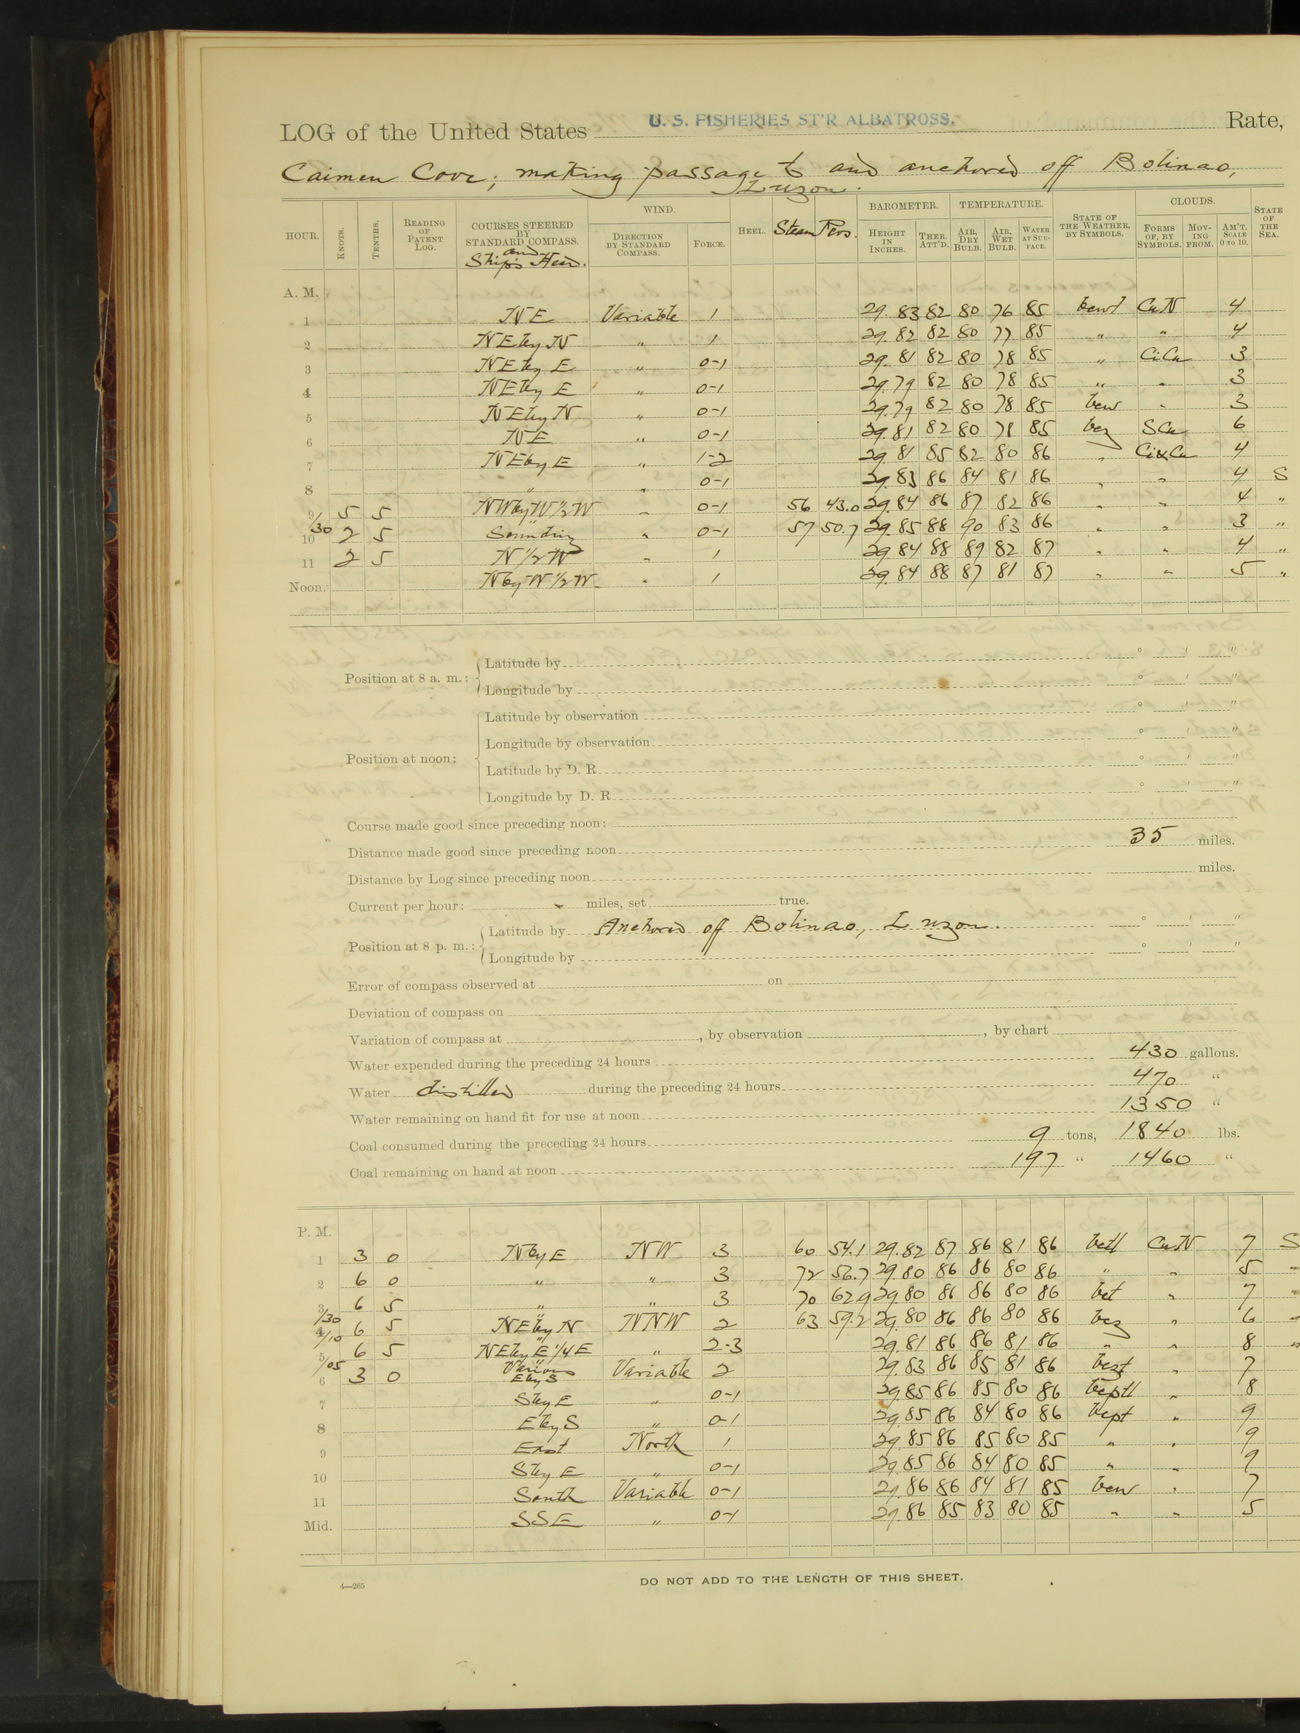 LOG of the United States U. S. FISHERIES ST'R ALBATROSS. Rate,
Caimen Cove; making passage to and anchored off Bolinao,
Luzon.
HOUR. KNOTS. TENTHS. READING OF PATENT LOG. COURSES STEERED BY STANDARD COMPASS. and Ship's Head. WIND. DIRECTION BY STANDARD COMPASS. FORCE. HEEL. Steam Revs. BAROMETER. HEIGHT IN INCHES. THER. ATT'D. TEMPERATURE. AIR, DRY BULB. AIR, WET BULB. WATER AT SURFACE. STATE OF THE WEATHER, BY SYMBOLS. CLOUDS. FORMS OF, BY SYMBOLS. MOVING FROM. AM'T. SCALE 0 TO 10. STATE OF THE SEA.
A. M.
1 NE Variable 1 29.83 82 80 76 85 CuN 4
2 NE by N " 1 29.82 82 80 77 85 " " 4
3 NE by E " 0-1 29.81 82 80 78 85 " CiCu 3
4 NE by E " 0-1 29.79 82 80 78 85 " " 3
5 NE by N " 0-1 29.79 82 80 78 85 bcw " 3
6 NE " 0-1 29.81 82 80 78 85 bcz SCu 6
7 NE by E " 1-2 29.81 85 82 80 86 " Ci&Cu 4
8 " " 0-1 29.83 86 84 81 86 " " 4 S
9 5 5 NW by W 1/2 W " 0-1 56 43.0 29.84 86 87 82 86 " " 4 "
/30 10 2 5 Sounding " 0-1 57 50.7 29.85 88 90 83 86 " " 3 "
11 2 5 N 1/2 W " 1 29.84 88 89 82 87 " " 4 "
Noon. N by W 1/2 W " 1 29.84 88 87 81 87 " " 5 "
Position at 8 a. m.: Latitude by ° ′ ″
Longitude by ° ′ ″
Position at noon: Latitude by observation ° ′ ″
Longitude by observation ° ′ ″
Latitude by D. R. ° ′ ″
Longitude by D. R. ° ′ ″
Course made good since preceding noon:
Distance made good since preceding noon 35 miles.
Distance by Log since preceding noon miles.
Current per hour: miles, set true.
Position at 8 p. m.: Latitude by Anchored off Bolinao, Luzon. ° ′ ″
Longitude by ° ′ ″
Error of compass observed at on
Deviation of compass on
Variation of compass at , by observation , by chart
Water expended during the preceding 24 hours 430 gallons.
Water distilled during the preceding 24 hours 470 "
Water remaining on hand fit for use at noon 1350 "
Coal consumed during the preceding 24 hours 9 tons, 1840 lbs.
Coal remaining on hand at noon 197 " 1460 "
P. M.
1 3 0 N by E NW 3 60 54.1 29.82 87 86 81 86 CuN 7 S
2 6 0 " " 3 72 56.7 29.80 86 86 80 86 " " 5 "
3 6 5 " " 3 70 62.9 29.80 86 86 80 86 bct " 7 "
/30 4 6 5 NE by N NNW 2 63 59.2 29.80 86 86 80 86 bcz " 6 "
/10 5 6 5 NE by E 1/4 E " 2-3 29.81 86 86 81 86 " " 8 "
/05 6 3 0 Various E by S Variable 2 29.83 86 85 81 86 bczt " 7
7 S by E " 0-1 29.85 86 85 80 86 bcptl " 8
8 E by S " 0-1 29.85 86 84 80 86 bcpt " 9
9 East North 1 29.85 86 85 80 85 " " 9
10 S by E " 0-1 29.85 86 84 80 85 " " 9
11 South Variable 0-1 29.86 86 84 81 85 bcw " 7
Mid. SSE " 0-1 29.86 85 83 80 85 " " 5
4—265
DO NOT ADD TO THE LENGTH OF THIS SHEET.